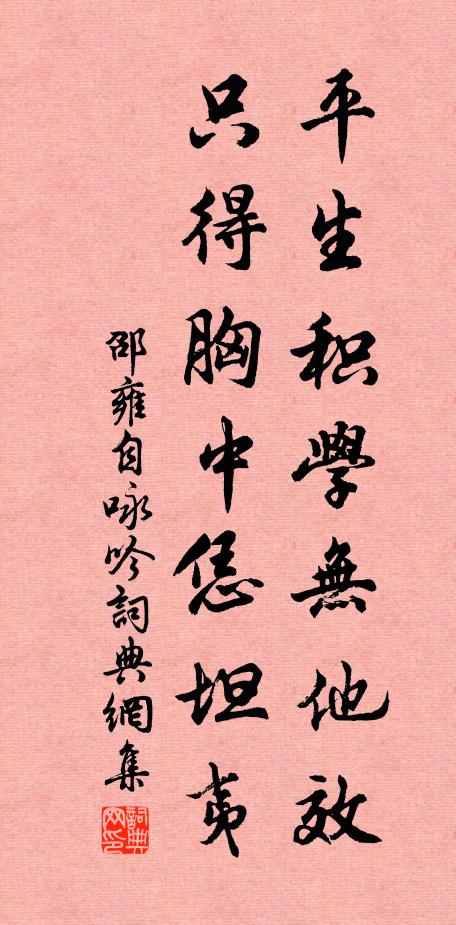 平生积學無他效
只得胸中恁坦夷
邵雍自咏吟詞典網集
詞典网印